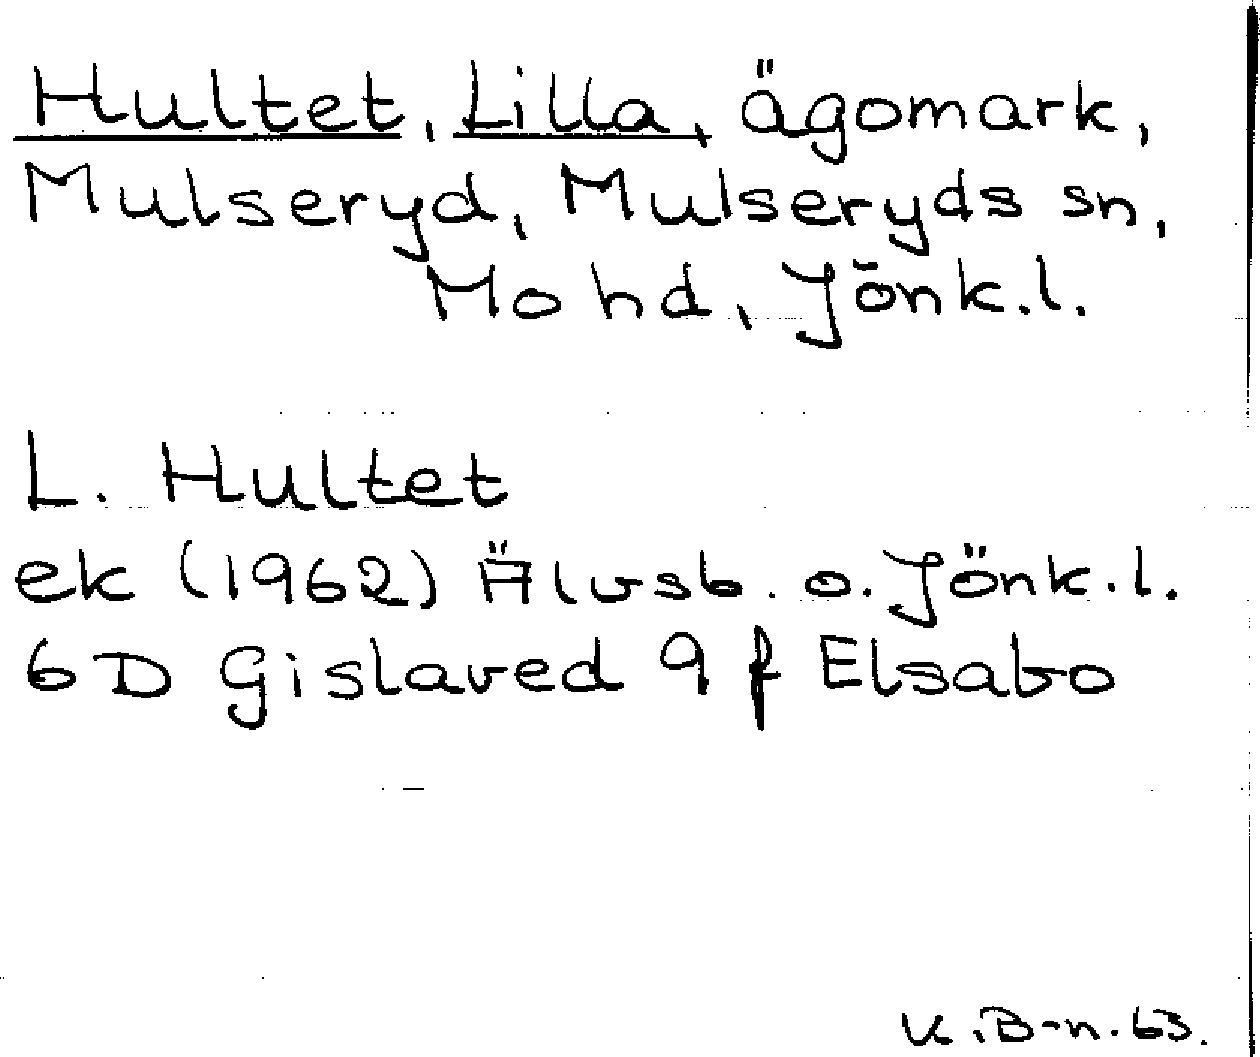 Hultet, Lilla, ägomark,
Mulseryd, Mulseryds sn,
Mo hd, Jönk.l.
L. Hultet
ek (1962) Älvsb. o. Jönk.l.
6D Gislaved 9 f Elsabo
K.B-n. 63.